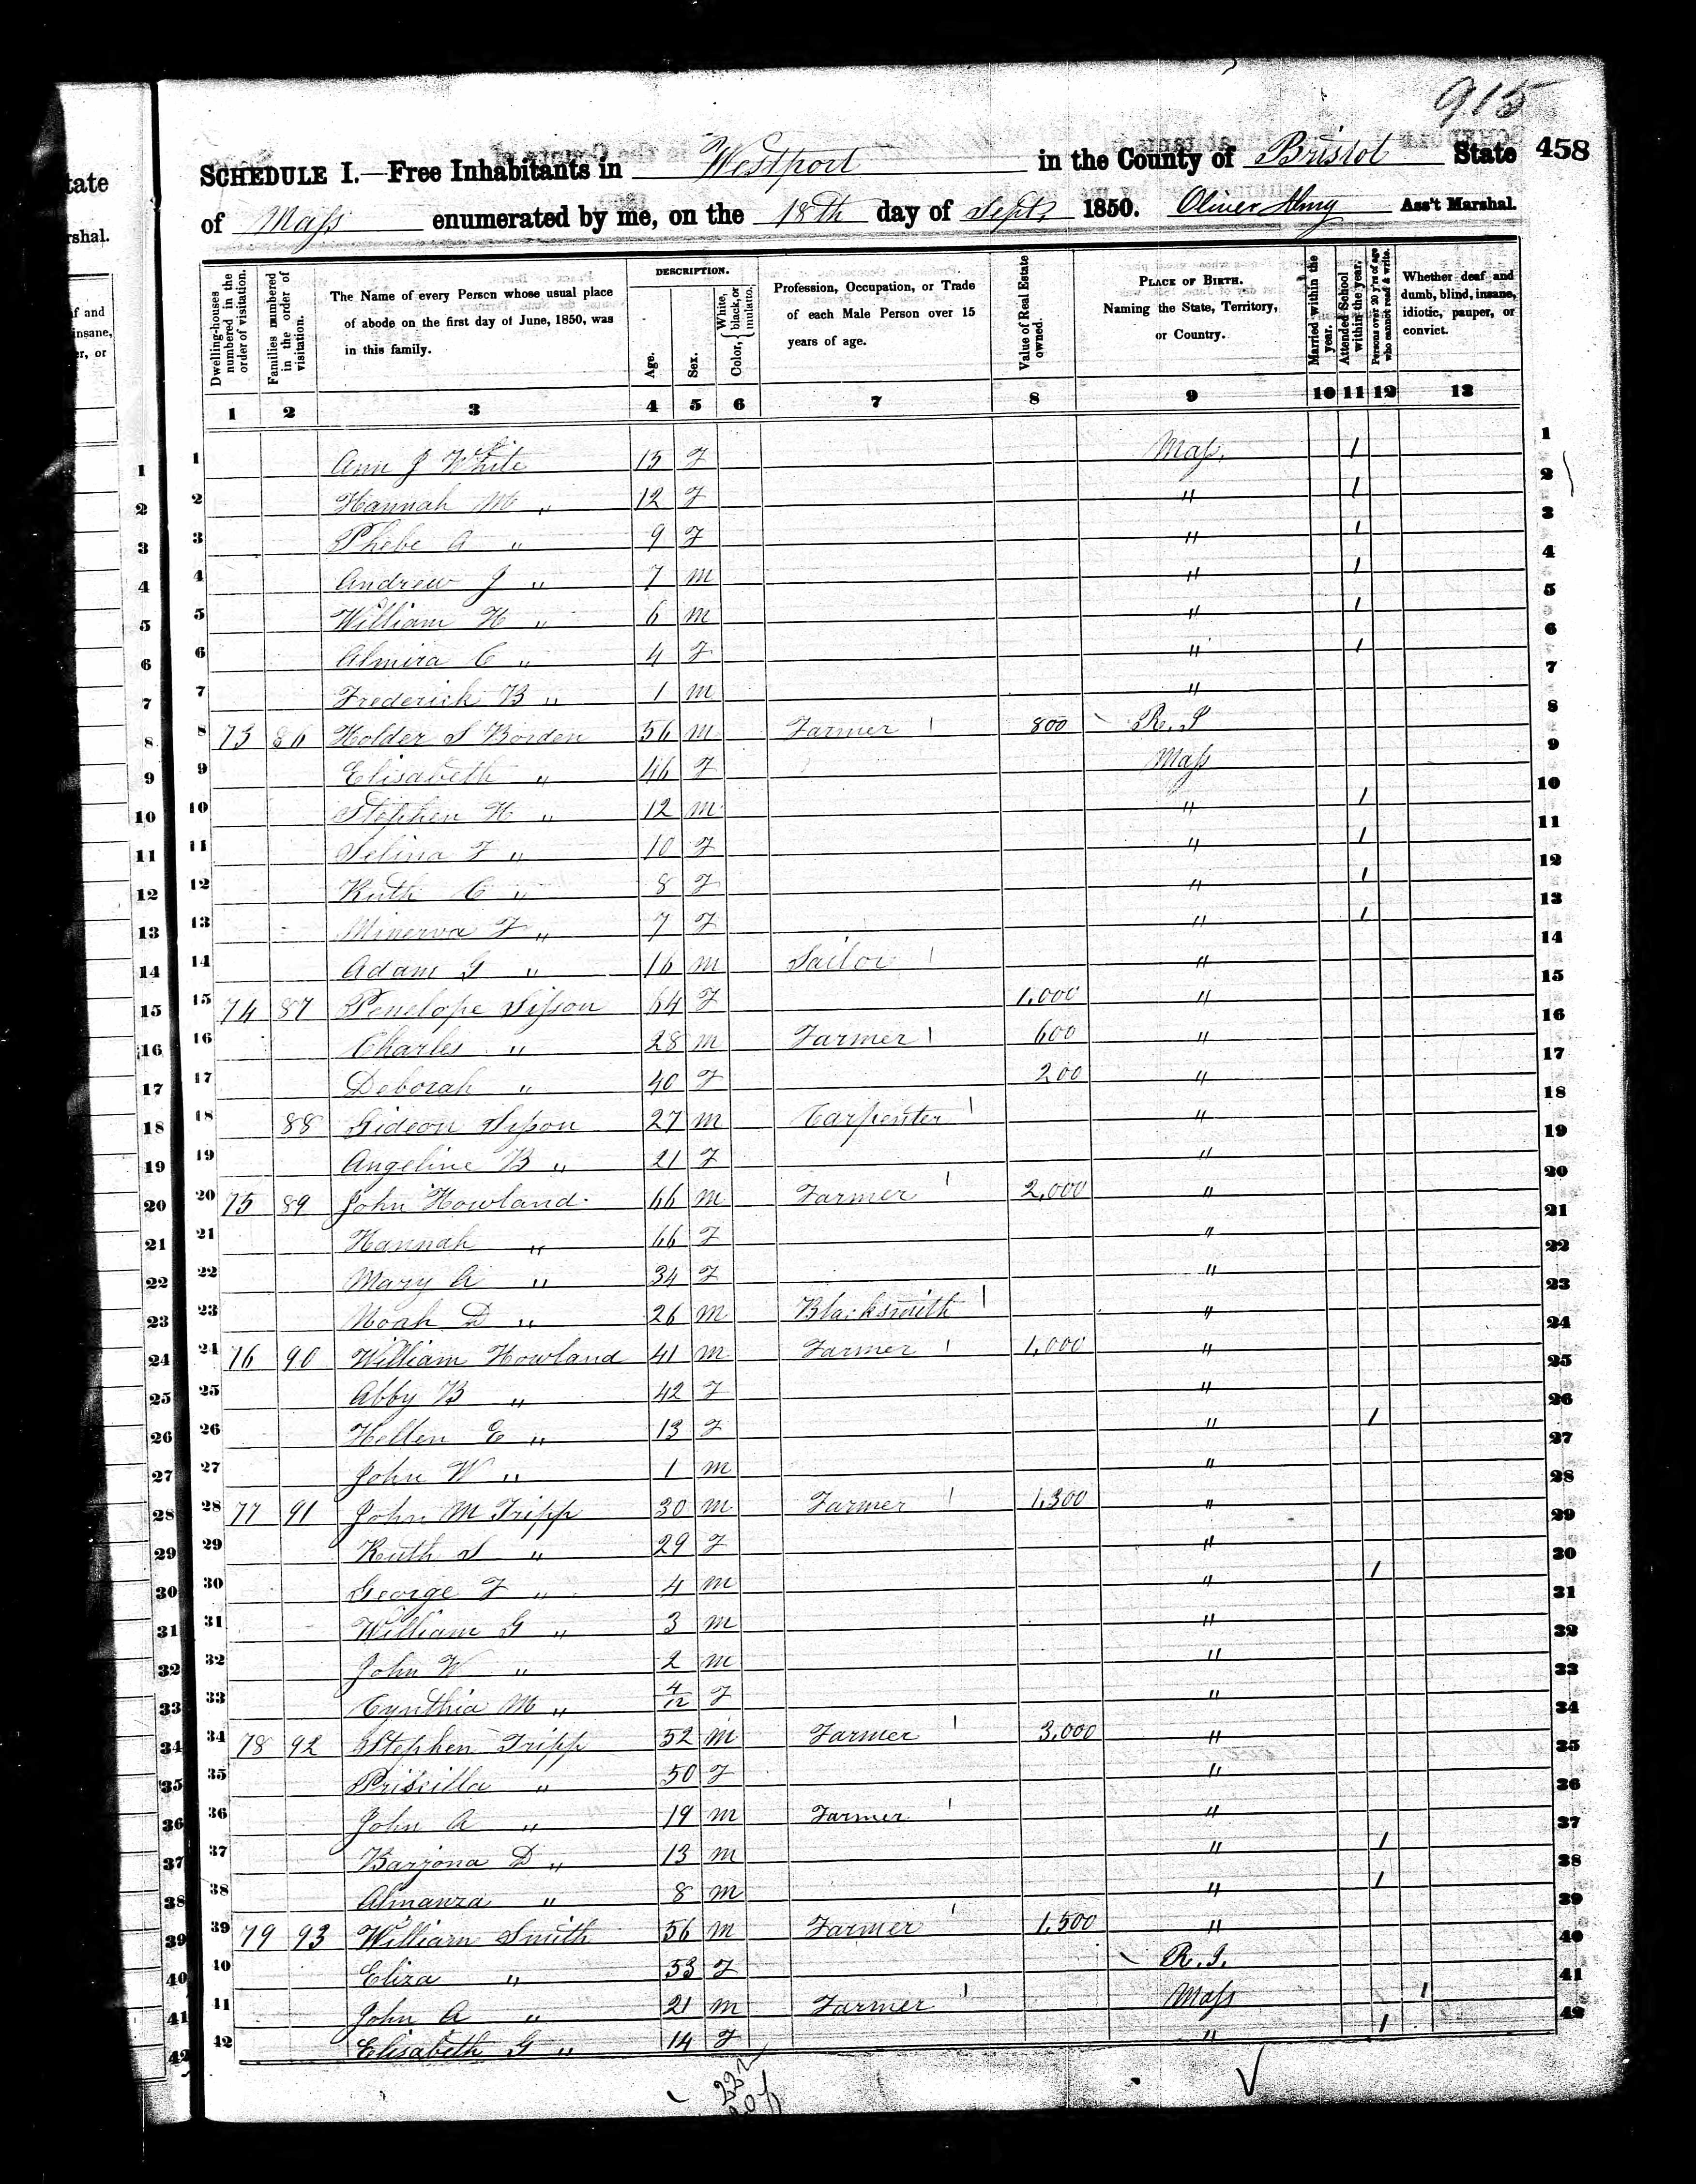 915
SCHEDULE I.—Free Inhabitants in Westport in the County of Bristol State 458
of Mass enumerated by me, on the 18th day of Sept. 1850. Oliver Almy Ass't Marshal.
Dwelling-houses numbered in the order of visitation.
Families numbered in the order of visitation.
The Name of every Person whose usual place of abode on the first day of June, 1850, was in this family.
DESCRIPTION.
Age.
Sex.
Color, { White, black, or mulatto.
Profession, Occupation, or Trade of each Male Person over 15 years of age.
Value of Real Estate owned.
PLACE OF BIRTH. Naming the State, Territory, or Country.
Married within the year.
Attended School within the year.
Persons over 20 y'rs of age who cannot read & write.
Whether deaf and dumb, blind, insane, idiotic, pauper, or convict.
1 2 3 4 5 6 7 8 9 10 11 12 13
1 Ann J White 13 F Mass. 1 1
2 Hannah M " 12 F " 1 2
3 Phebe A " 9 F " 1 3
4 Andrew J " 7 M " 1 4
5 William H " 6 M " 1 5
6 Almira C " 4 F " 1 6
7 Frederick B " 1 M " 7
8 73 86 Holder S Borden 56 M Farmer 1 800 R. I 8
9 Elisabeth " 46 F Mass 9
10 Stephen H " 12 M " 1 10
11 Selina F " 10 F " 1 11
12 Ruth C " 8 F " 1 12
13 Minerva F " 7 F " 1 13
14 Adam G " 16 M Sailor 1 " 14
15 74 87 Penelope Sisson 64 F 1,000 " 15
16 Charles " 28 M Farmer 1 600 " 16
17 Deborah " 40 F 200 " 17
18 88 Gideon Sisson 27 M Carpenter 1 " 18
19 Angeline B " 21 F " 19
20 75 89 John Howland 66 M Farmer 1 2,000 " 20
21 Hannah " 66 F " 21
22 Mary A " 34 F " 22
23 Noah D " 26 M Blacksmith 1 " 23
24 76 90 William Howland 41 M Farmer 1 1,000 " 24
25 Abby B " 42 F " 25
26 Hellen E " 13 F " 1 26
27 John W " 1 M " 27
28 77 91 John M Tripp 30 M Farmer 1 1,300 " 28
29 Ruth S " 29 F " 29
30 George F " 4 M " 1 30
31 William G " 3 M " 31
32 John W " 2 M " 32
33 Cynthia M " 4/12 F " 33
34 78 92 Stephen Tripp 52 M Farmer 1 3,000 " 34
35 Priscilla " 50 F " 35
36 John A " 19 M Farmer 1 " 36
37 Barjona D " 13 M " 1 37
38 Almanza " 8 M " 1 38
39 79 93 William Smith 56 M Farmer 1 1,500 " 39
40 Eliza " 53 F R. I. 40
41 John A " 21 M Farmer 1 Mass 1 41
42 Elisabeth G " 14 F " 1 42